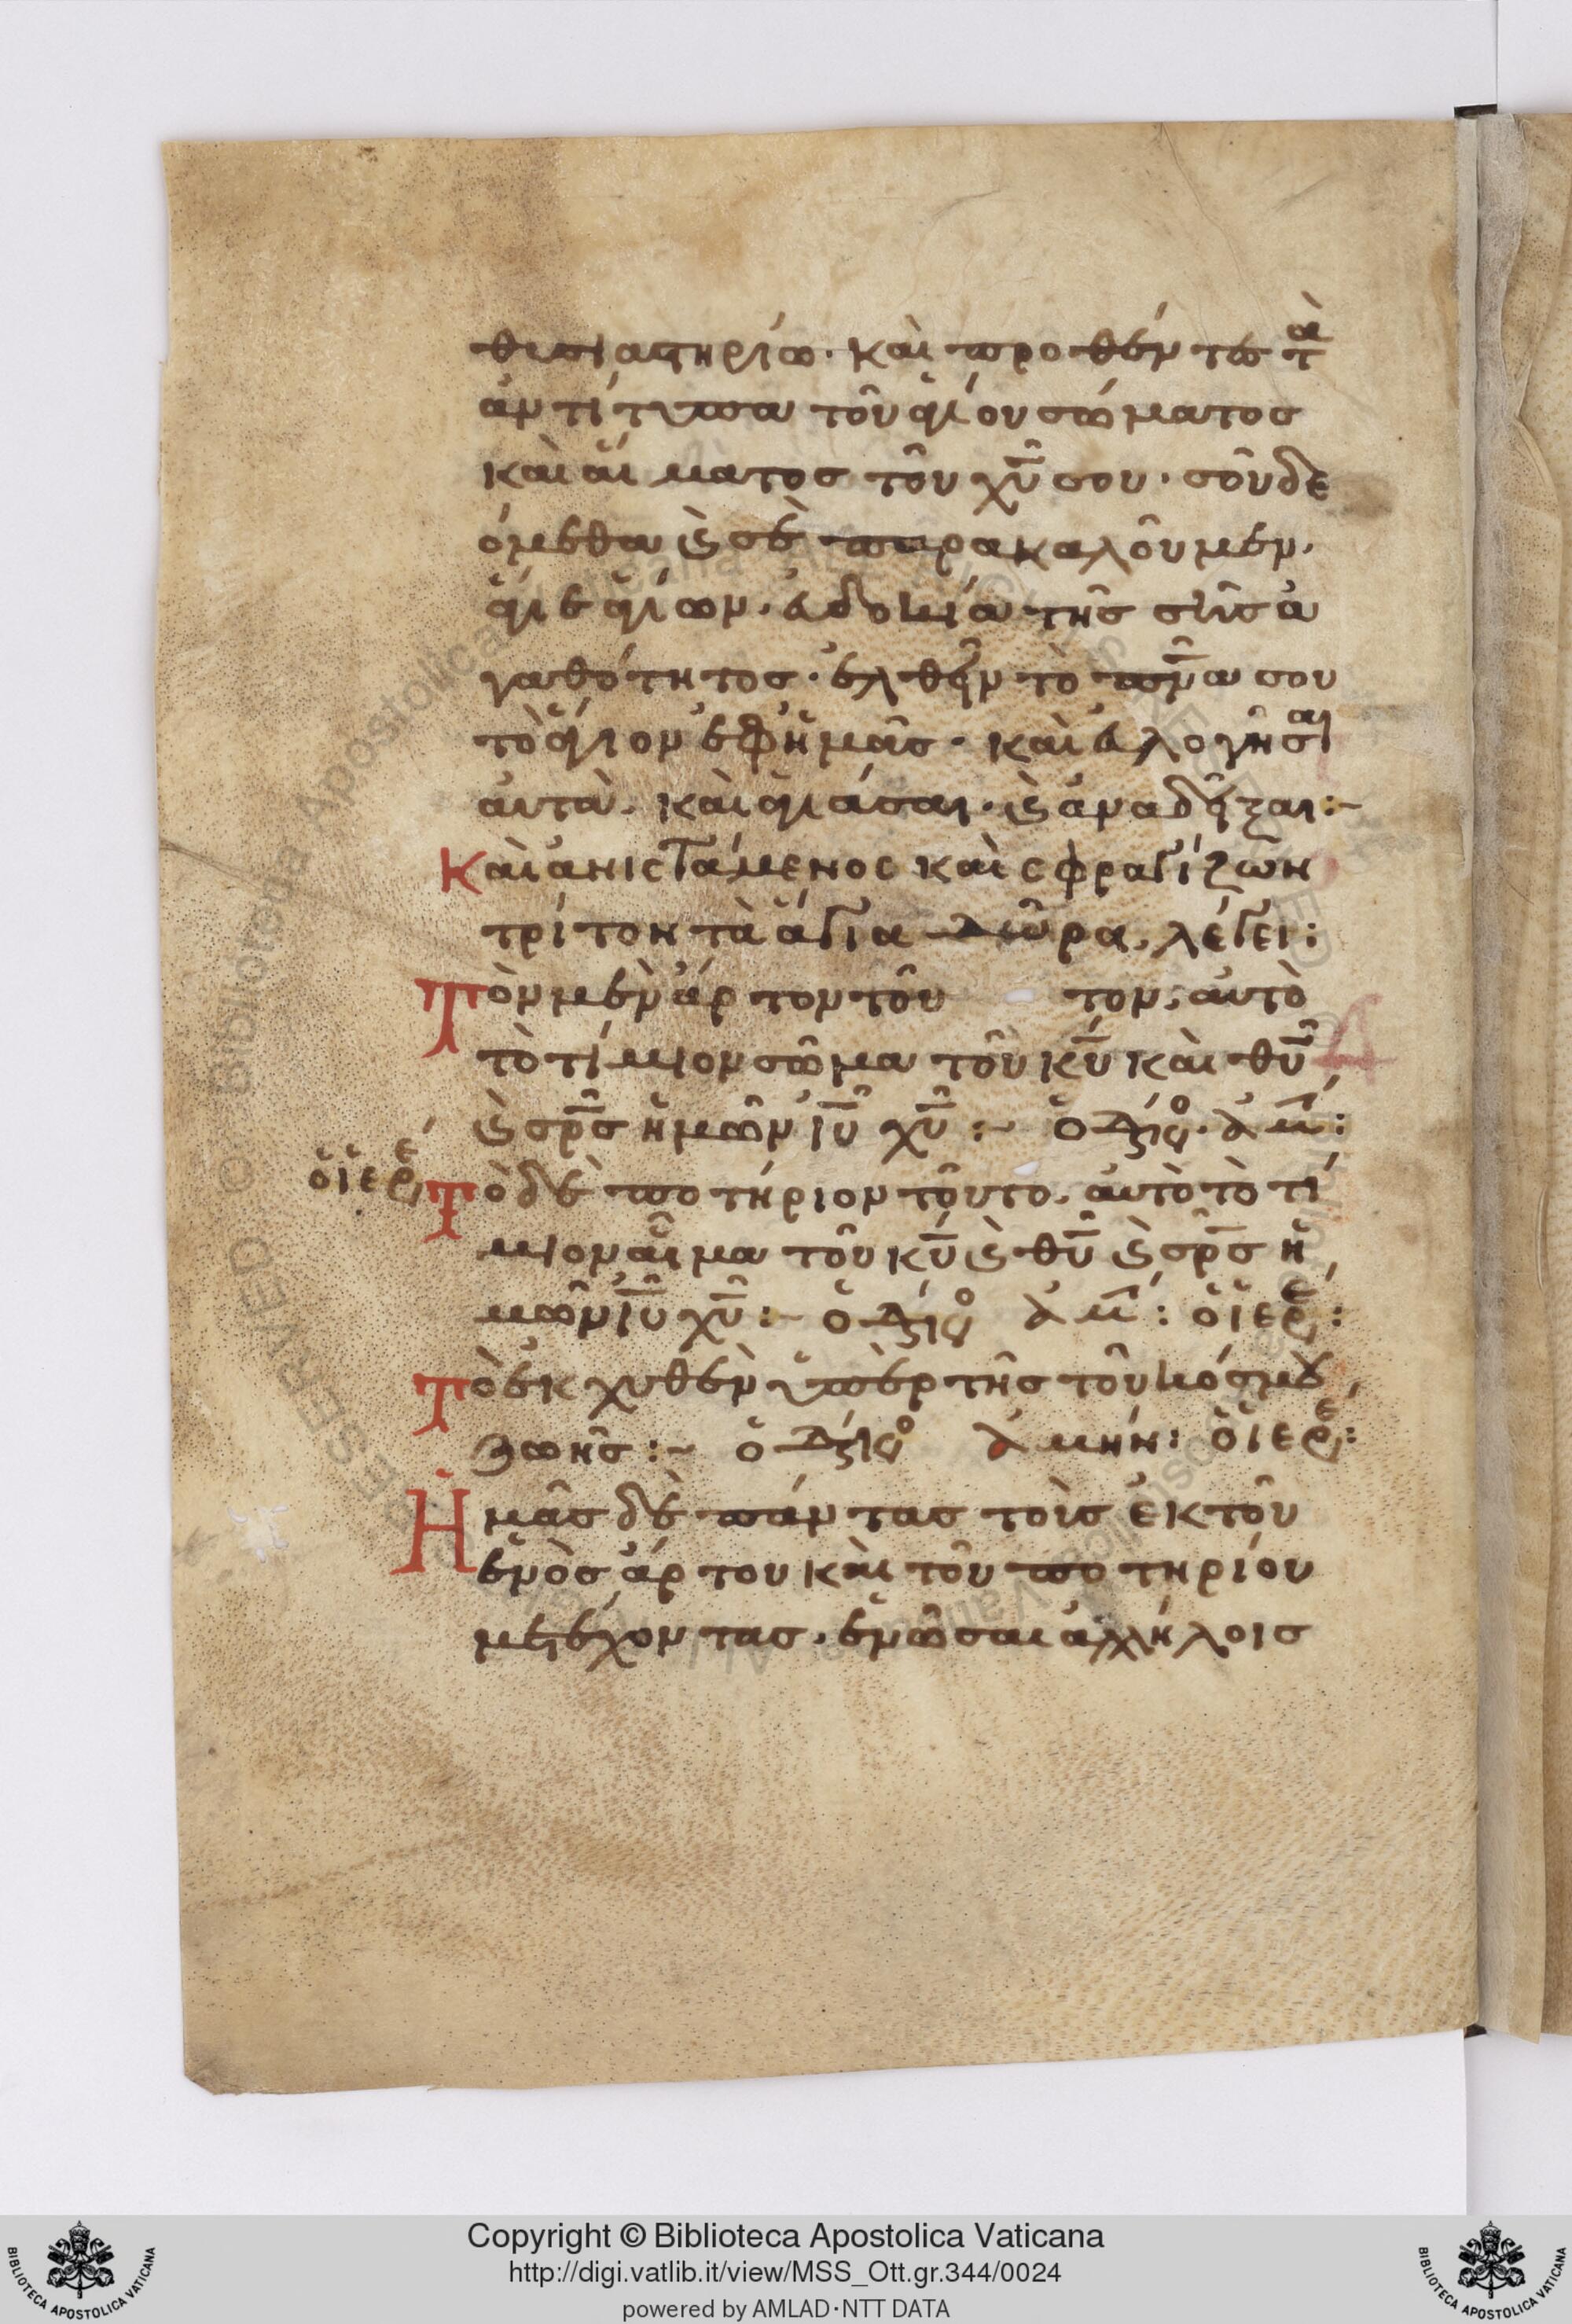 θυσιαστηρίω· καὶ προθέντες τὰ
ἀντίτυπα τοῦ ἁγίου σώματος
καὶ αἵματος τοῦ χῦ σου· σοῦ δε
όμεθα ϗ σὲ παρακαλοῦμεν·
ἅγιε ἁγίων· εὐδοκία τῆς σῆς ἀ
γαθότητος· ἐλθεῖν τὸ πνᾶ σου
τὸ ἅγιον ἐφ ἡμᾶς· καὶ εὐλογῆσαι
αὐτὰ· καὶ ἁγιάσαι· ϗ ἀναδεῖξαι:~
Καὶ ἀνιστάμενος καὶ σφραγίζων
τρίτον τὰ ἅγια δῶρα, λέγει:
Τὸν μὲν ἄρτον τοῦτον, αὐτὸ
τὸ τίμιον σῶμα τοῦ κῦ καὶ θῦ
ϗ σρς ἡμῶν ἰῦ χῦ:~ ὁ διάκο· ἀμ:
ὁ ἱερ, Τὸ δὲ ποτήριον τοῦτο, αὐτὸ τὸ τί
μιον αἷμα τοῦ κῦ ϗ θῦ ϗ σρς ἡ
μῶν ἰῦ χῦ:~ ὁ διάκο ἀμ: ὁ ἱερε:
Τὸ ἐκχυθὲν ὑπὲρ τῆς τοῦ κόσμου,
ζωῆς:~ ὁ διάκο ἀμήν: ὁ ἱερε:
Ἡμᾶς δὲ πάντας τοὺς ἐκ τοῦ
ἑνὸς ἄρτου καὶ τοῦ ποτηρίου
μετέχοντας· ἑνῶσαι ἀλλήλοις
Copyright © Biblioteca Apostolica Vaticana
http://digi.vatlib.it/view/MSS_Ott.gr.344/0024
powered by AMLAD·NTT DATA
BIBLIOTECA APOSTOLICA VATICANA
BIBLIOTECA APOSTOLICA VATICANA